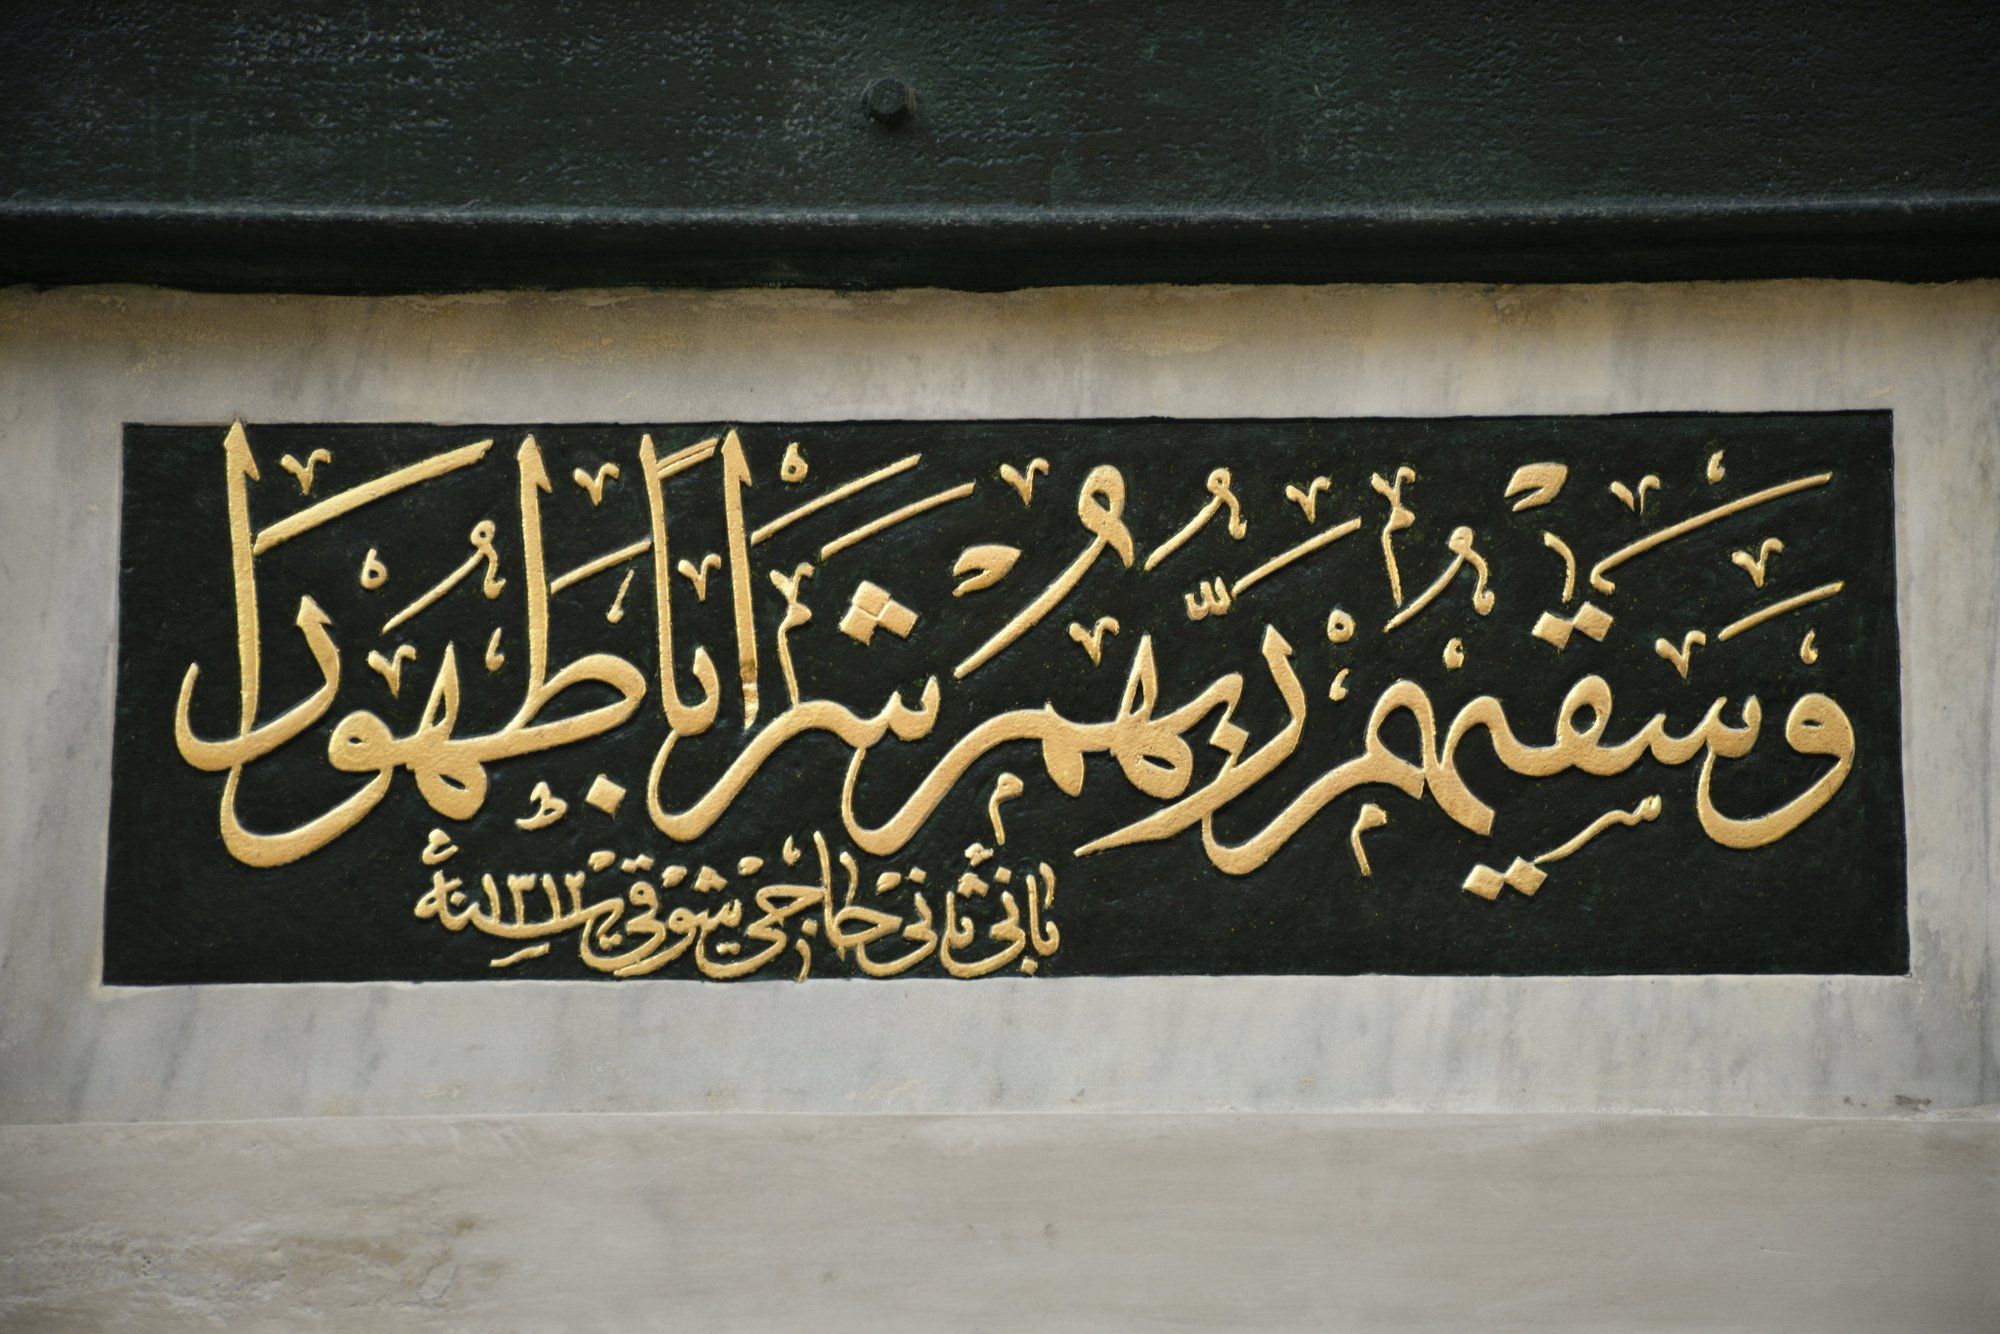 وَسَقٰيهُمْ رَبُّهُمْ شَرَابًا طَهُورًا
بانئ ثانى حاجى شوقى بك سنه ١٣١٢